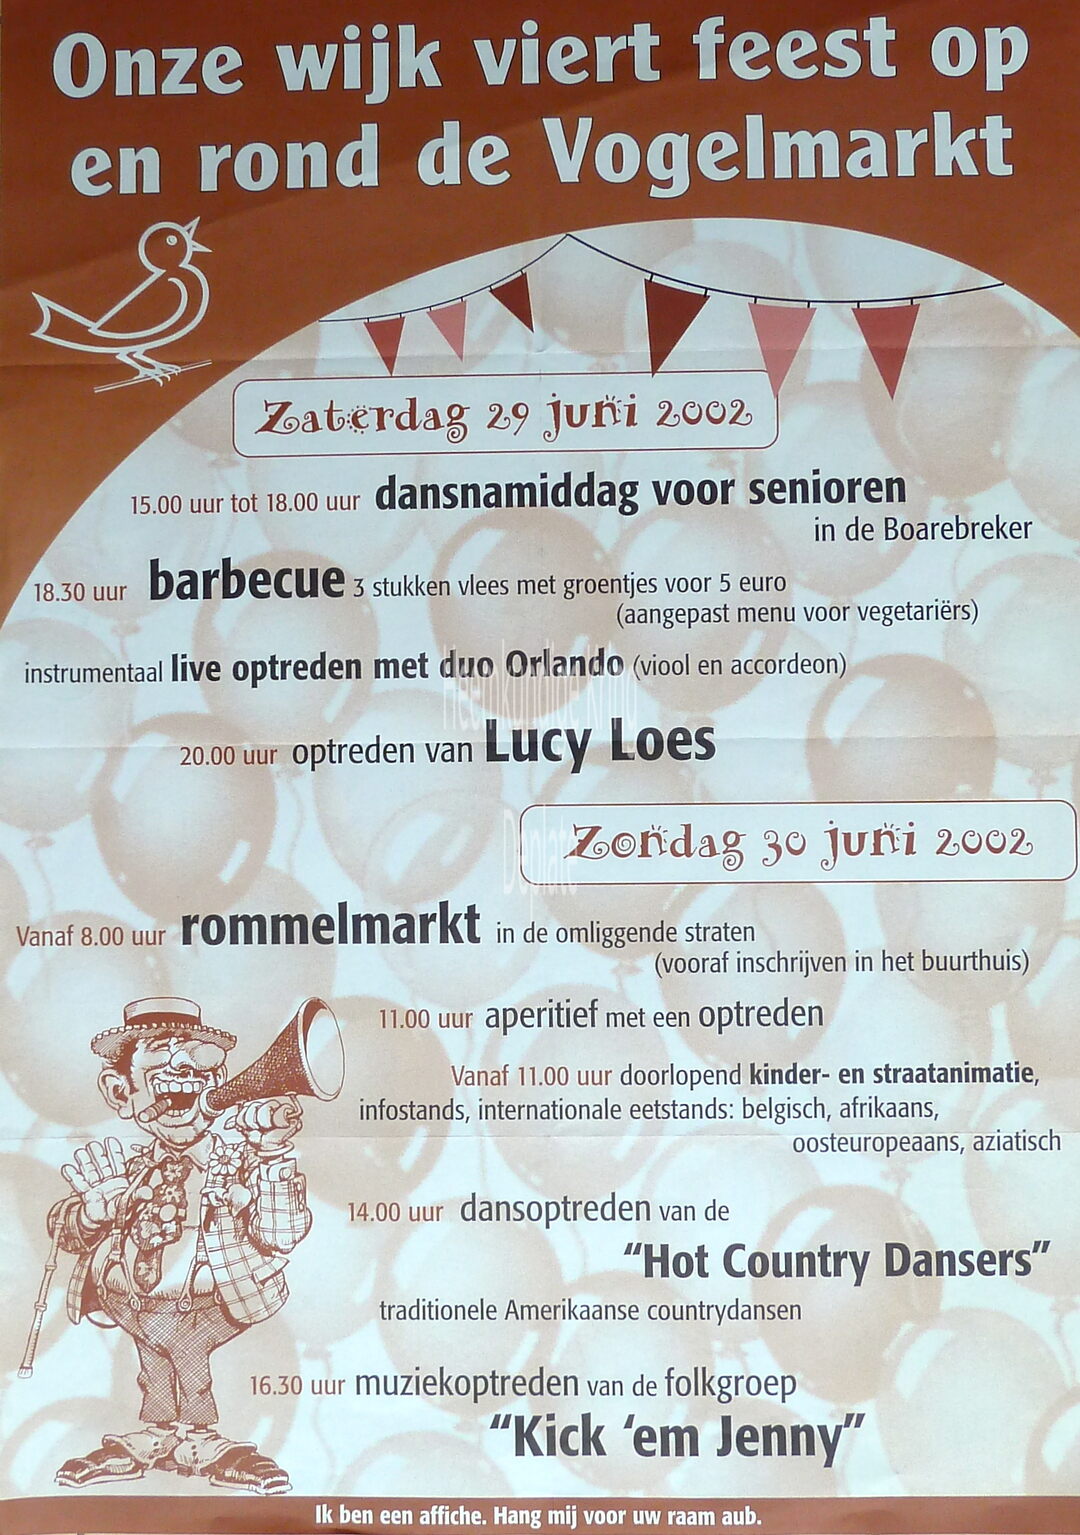 Onze wijk viert feest op
en rond de Vogelmarkt
Zaterdag 29 juni 2002
15.00 uur tot 18.00 uur dansnamiddag voor senioren
in de Boarebreker
18.30 uur barbecue 3 stukken vlees met groentjes voor 5 euro
(aangepast menu voor vegetariërs)
instrumentaal live optreden met duo Orlando (viool en accordeon)
20.00 uur optreden van Lucy Loes
Zondag 30 juni 2002
Vanaf 8.00 uur rommelmarkt in de omliggende straten
(vooraf inschrijven in het buurthuis)
11.00 uur aperitief met een optreden
Vanaf 11.00 uur doorlopend kinder- en straatanimatie,
infostands, internationale eetstands: belgisch, afrikaans,
oosteuropeaans, aziatisch
14.00 uur dansoptreden van de
“Hot Country Dansers”
traditionele Amerikaanse countrydansen
16.30 uur muziekoptreden van de folkgroep
“Kick ‘em Jenny”
Ik ben een affiche. Hang mij voor uw raam aub.